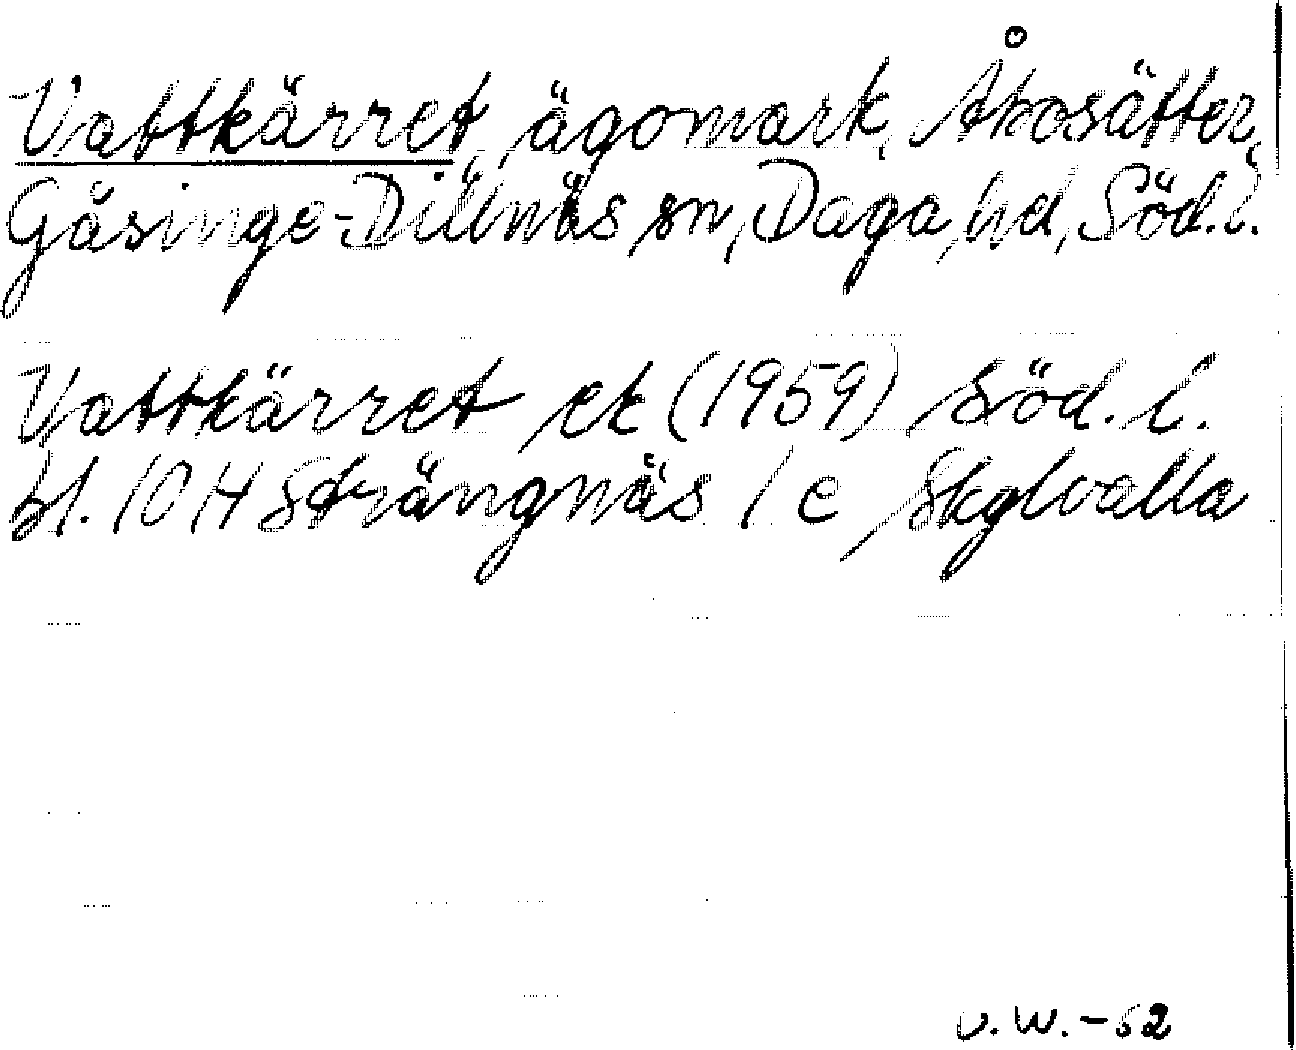 Vattkärret, ägomark, Åbosätter,
Gåsinge-Dillnäs sn, Daga hd, Söd. l.
Vattkärret ek (1959) Söd. l.
bl. 10 H Strängnäs / c, Skylvalla
v. W. - 62